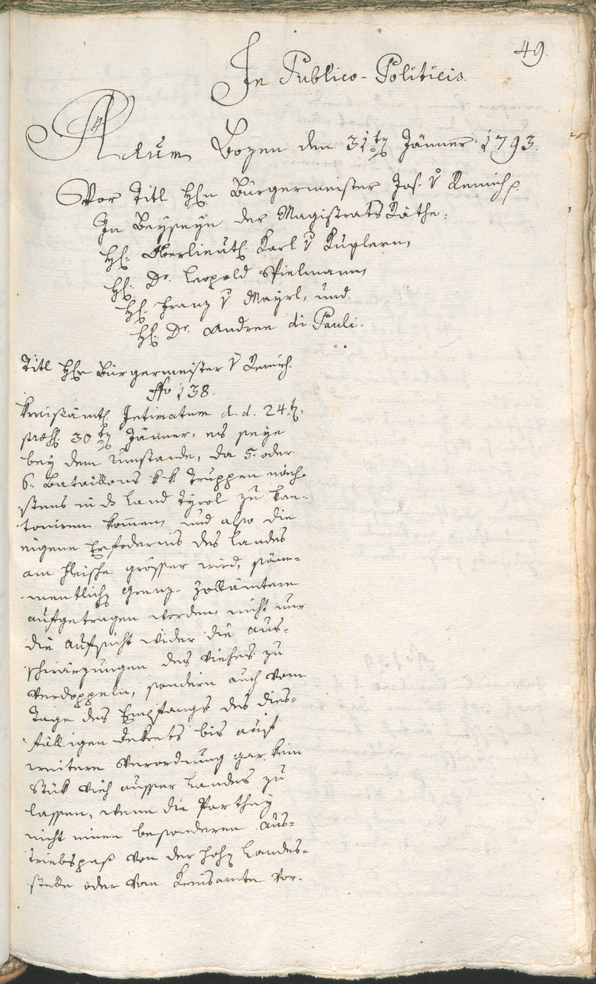 49.
In Publico-Politicis
Actum Bozen den 31ten Jänner 1793.
Vor Titl Hn Bürgermeister Jos. v Remich
In Beyseyn der Magistrats Räthe:
H: Oberlieut: Karl v Kuglern,
H: Dr. Leopold Spielmann,
H: Franz v Mayrl, und
H: Dr. Andree di Pauli.
Titl Hn Bürgermeister v Remich.
No 138.
Kreisämtl Intimatum d. d. 24t,
30ten Jänner, es seye
bey dem Umstande, da 5. oder
6. Bataillons k k Truppen näch-
stens in das Land Tyrol zu kan-
toniren komen, und also die
eigene Erfoderniß des Landes
am Fleische grösser wird, säm-
mentlichen Grenz-Zollämtern
aufgetragen worden, nicht nur
die Aufsicht wider die Aus-
schwärzungen des Viehes zu
verdoppeln, sondern auch vom
Tage des Empfangs des dies-
fälligen Dekrets bis auf
weitere Verordnung gar kein
Stük Vieh ausser Landes zu
lassen, wenn die Parthey
nicht einen besonderen Aus-
triebspaß von der hohen Landes-
stelle oder vom Kreisamte vor-